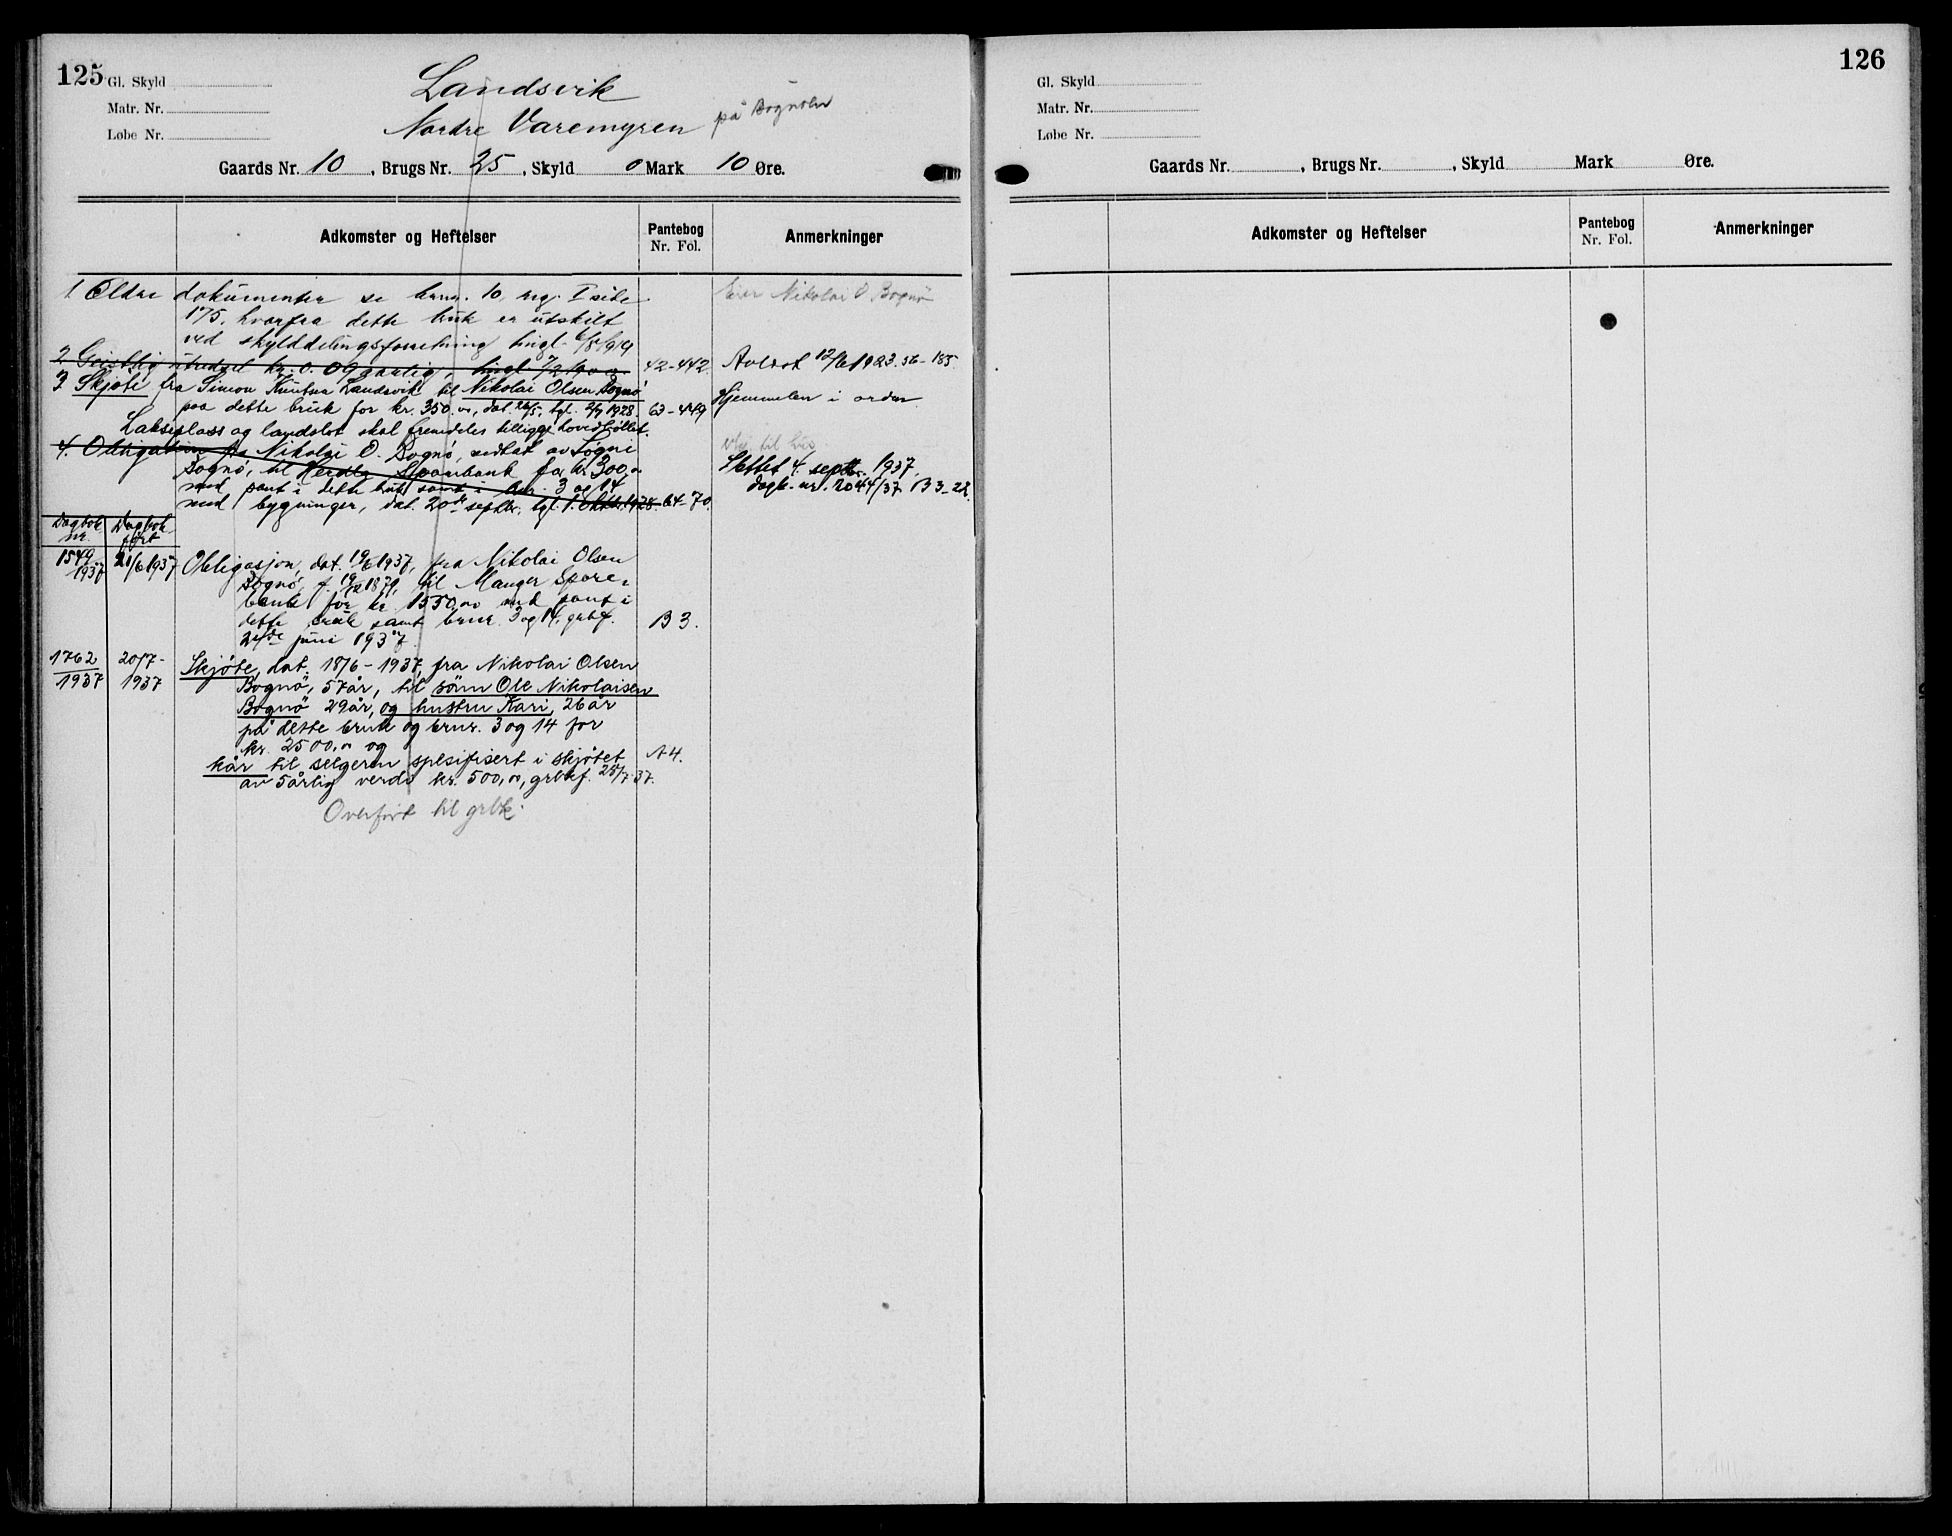 125
Gl. Skyld
Matr. Nr.
Løbe Nr.
Landsvik
Nordre Varemyren på Bognøen
Gaards Nr. 10, Brugs Nr. 25, Skyld 0 Mark 10 Øre.
Adkomster og Heftelser
Pantebog
Nr. Fol.
Anmerkninger
1 Eldre dokumenter se brnr. 10, reg. I side
175, hvorfra dette bruk er utskilt
ved skylddelingsforretning tingl. 6/5 1919
Eier Nikolai O Bognø
2 Geistlig utredsel kr. 0.06 aarlig, tingl. 42-442 Avløst 12/6 1923. 56-185.
3 Skjøte fra Simon Knutsen Landsvik til Nikolai Olsen Bognø
paa dette bruk for kr. 350.00, dat. 26/5, tgl. 2/7 1928. 63-449 Hjemmelen i orden
Lakseplass og landslot skal fremdeles tilligge hovedbøllet.
4. Obligation fra Nikolai O. Bognø, vedtat av Søgni
Bognø, til Herdla Sparebank for kr. 300,00
med pant i dette bruk samt i brnr. 3 og 14
med bygninger, dat. 20de septbr., tgl. 1. oktbr. 1928. 64-70
til hus
Slettet 4. septbr. 1937.
dagb. nr. 2044/37 B3-22.
Dagbok nr. Dagbok ført
1549/1937 21/6 1937 Obligasjon, dat. 19/6 1937, fra Nikolai Olsen
Bognø, f. 19/12 1879, til Manger Spare-
bank for kr. 1550,00 med pant i
dette bruk samt brnr. 3 og 14, grbf. B 3.
21de juni 1937
1762/1937 20/7-1937 Skjøte, dat. 18/6-1937, fra Nikolai Olsen
Bognø, 57 år, til sønn Ole Nikolaisen
Bognø 29 år, og hustru Kari, 26 år
på dette bruk og brnr. 3 og 14 for
kr. 2500,00 og
kår til selgeren spesifisert i skjøtet A 4.
av 5årlig verdi kr. 500,00, grbkf. 25/7-37.
Overført til grbk.
126
Gl. Skyld
Matr. Nr.
Løbe Nr.
Gaards Nr. , Brugs Nr. , Skyld Mark Øre.
Adkomster og Heftelser
Pantebog
Nr. Fol.
Anmerkninger